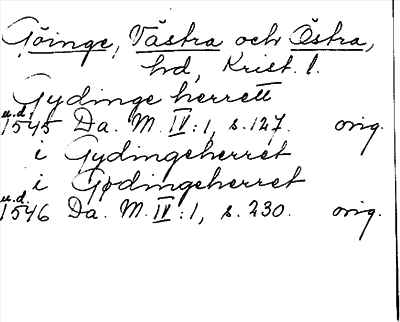 Göinge, Västra och Östra,
hd, Krist. l.
Gydinge herrett
u.d. 1545 Da. M. IV:1, s. 127. orig.
i Gydingeherret
i Gødingeherret
u.d. 1546 Da. M. IV:1, s. 230. orig.